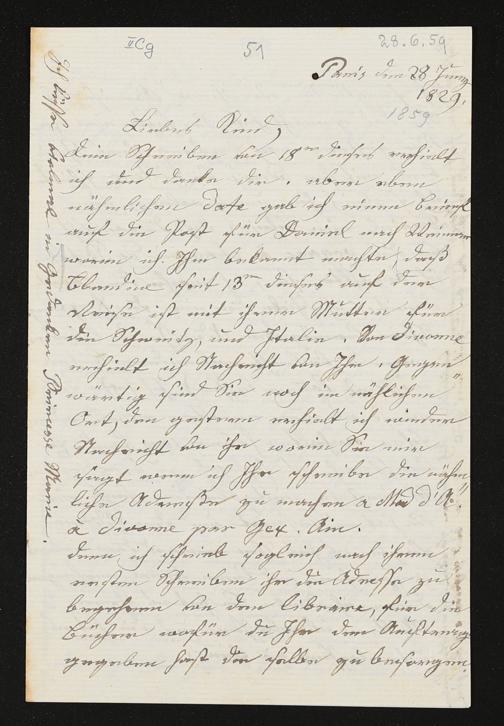 II Cg
51
28.6.59
Paris den 28 Juny
1829.
1859
Liebes Kind,
Dein Schreiben von 18ten dieses erhielt
ich und danke dir. aber eben
nähmlichen Date gab ich einen Brief
auf die Post für Daniel nach Weimar
worin ich Ihm bekannt machte, daß
Blandine seit 13ten dieses auf der
Reise ist mit ihrer Mutter für
die Schweitz, und Italie. Von Divonne
erhielt ich Nachricht von Ihr. Gegen"
wärtig sind Sie noch im nähmlichen
Ort, den gestern erhielt ich wieder
Nachricht von ihr worin Sie mir
sagt wenn ich Ihr schreibe die nähm
liche Adresse zu machen a Mad d'A.
a Divonne par Gex. Ain.
denn ich schrieb sogleich nach ihrem
ersten Schreiben ihr die Adresse zu
begehren von dem libraire, für die
Bücher wofür du Ihr den Auftrag
gegeben hast die selbe zu besorgen.
Ich küsse 1000mal in Gedanken Princesse Marie.